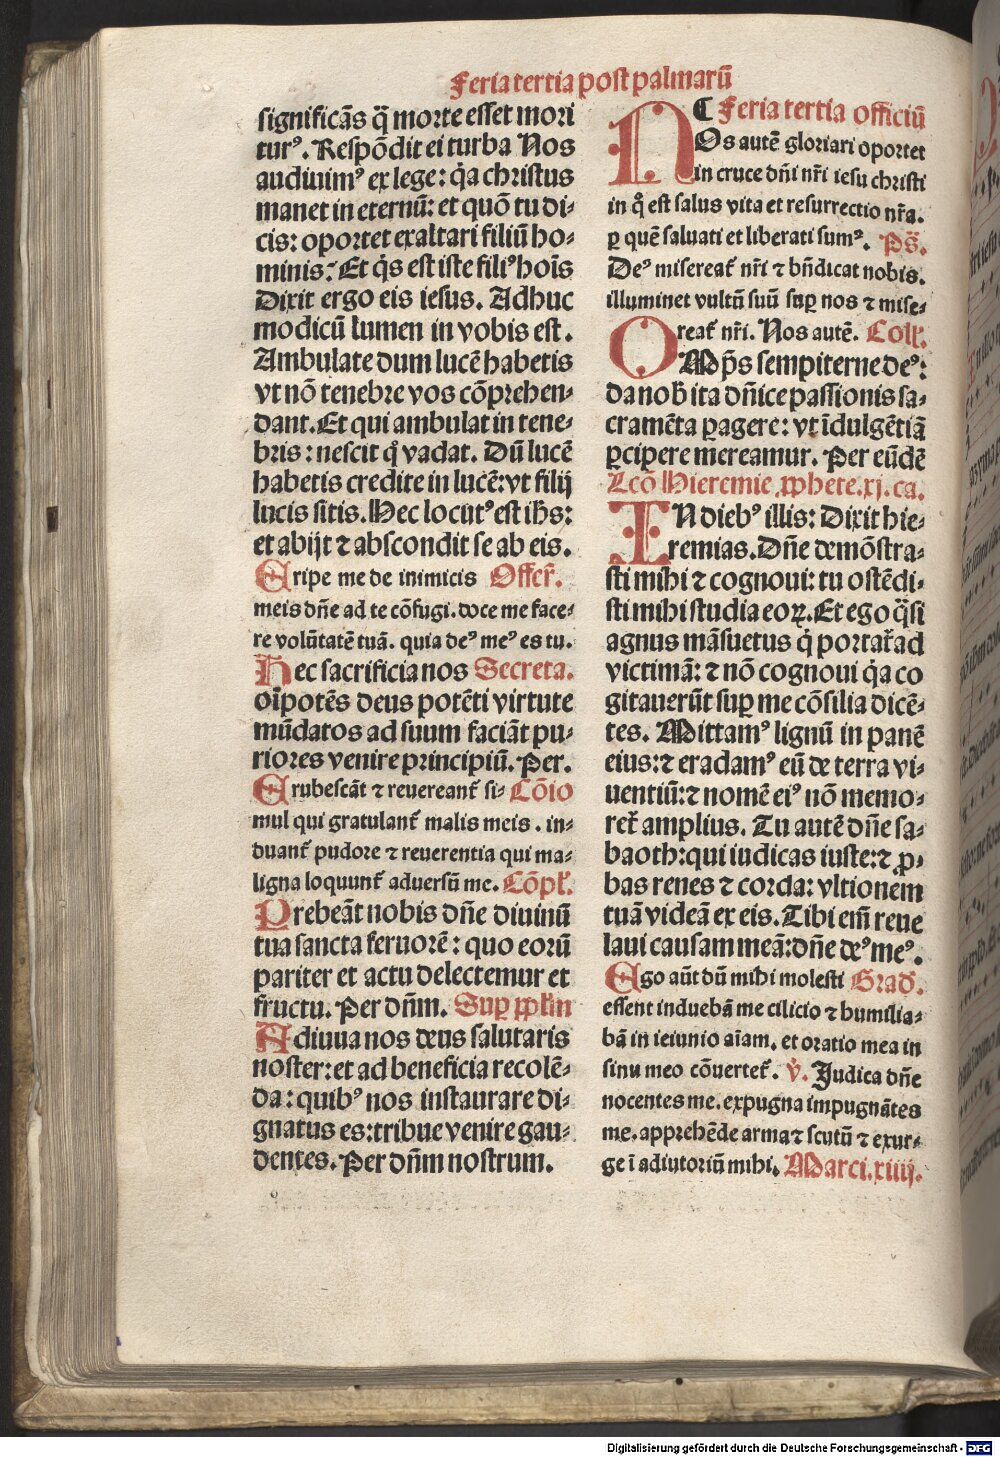 Feria tertia post palmarū
significās q̄ morte esset mori
turꝰ. Respōdit ei turba Nos
audiuimꝰ ex lege: q̇a christus
manet in eternū: et quō tu di-
cis: oportet exaltari filiū ho-
minis: Et q̇s est iste filiꝰ hoīs
Dixit ergo eis iesus. Adhuc
modicū lumen in vobis est.
Ambulate dum lucē habetis
vt nō tenebre vos cōprehen-
dant. Et qui ambulat in tene-
bris: nescit q̊ vadat. Dū lucē
habetis credite in lucē: vt filij
lucis sitis. Hec locutꝰ est ihs:
et abijt ⁊ abscondit se ab eis.
Eripe me de inimicis Offer̄.
meis dn̄e ad te cōfugi. doce me face-
re volūtatē tuā. quia deꝰ meꝰ es tu.
Hec sacrificia nos Secreta.
oīpotēs deus potēti virtute
mūdatos ad suum faciāt pu-
riores venire principiū. Per.
Erubescāt ⁊ reuereant᷑ si- Cōio
mul qui gratulant᷑ malis meis. in-
duant᷑ pudore ⁊ reuerentia qui ma-
ligna loquunt᷑ aduersū me. Cōpl̄.
Prebeāt nobis dn̄e diuinū
tua sancta feruorē: quo eorū
pariter et actu delectemur et
fructu. Per dn̄m. Suꝑ ppl̄m
Adiuua nos deus salutaris
noster: et ad beneficia recolē-
da: quibꝰ nos instaurare di-
gnatus es: tribue venire gau-
dentes. Per dn̄m nostrum.
¶ Feria tertia officiū
NOs autē gloriari oportet
in cruce dn̄i nr̄i iesu christi
in q̊ est salus vita et resurrectio nr̄a.
ꝑ quē saluati et liberati sumꝰ. Ps̄.
Deꝰ misereat᷑ nr̄i ⁊ bn̄dicat nobis.
illuminet vultū suū suꝑ nos ⁊ mise-
reat᷑ nr̄i. Nos autē. Coll̄.
OMp̄s sempiterne deꝰ:
da nob̄ ita dn̄ice passionis sa-
cramēta ꝑagere: vt īdulgētiā
ꝑcipere mereamur. Per eūdē
Lcō Hieremie ꝓphete. xj. ca.
IN diebꝰ illis: Dixit hie-
remias. Dn̄e demōstra-
sti mihi ⁊ cognoui: tu ostēdi-
sti mihi studia eoꝝ. Et ego q̄si
agnus māsuetus q̇ portat᷑ ad
victimā: ⁊ nō cognoui q̇a co
gitauerūt suꝑ me cōsilia dicē-
tes. Mittamꝰ lignū in panē
eius: ⁊ eradamꝰ eū de terra vi-
uentiū: ⁊ nomē eiꝰ nō memo-
ret᷑ amplius. Tu autē dn̄e sa-
baoth: qui iudicas iuste: ⁊ ꝓ-
bas renes ⁊ corda: vltionem
tuā videā ex eis. Tibi em̄ reue
laui causam meā: dn̄e deꝰ meꝰ.
Ego aūt dū mihi molesti Grad̄.
essent induebā me cilicio ⁊ humilia-
bā in ieiunio aīam. et oratio mea in
sinu meo cōuertet᷑. v̇. Judica dn̄e
nocentes me. expugna impugnātes
me. apprehēde arma ⁊ scutū ⁊ exur-
ge ī adiutoriū mihi. Marci. xiiij.
Digitalisierung gefördert durch die Deutsche Forschungsgemeinschaft - DFG